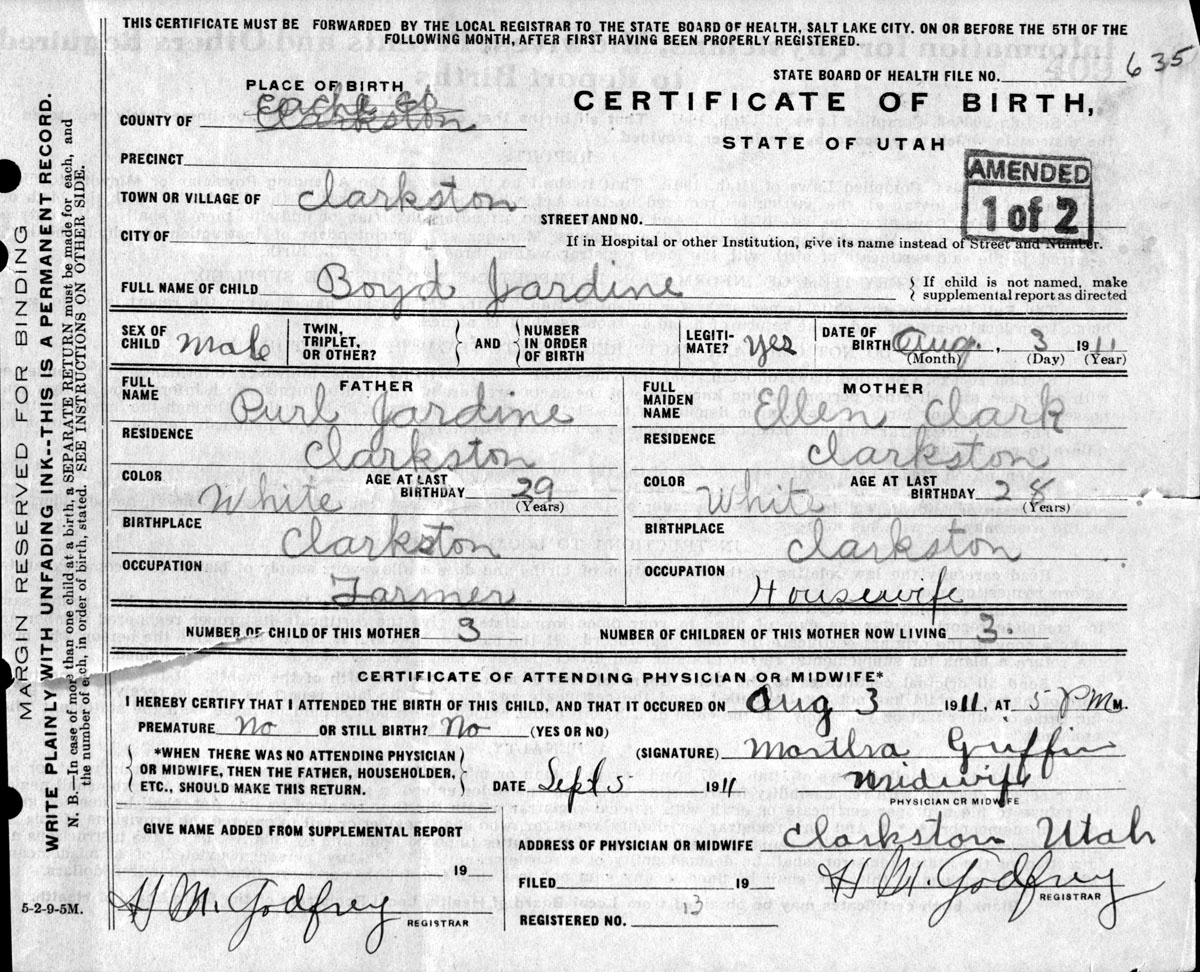 THIS CERTIFICATE MUST BE FORWARDED BY THE LOCAL REGISTRAR TO THE STATE BOARD OF HEALTH, SALT LAKE CITY. ON OR BEFORE THE 5TH OF THE
FOLLOWING MONTH, AFTER FIRST HAVING BEEN PROPERLY REGISTERED.
STATE BOARD OF HEALTH FILE NO. 635
PLACE OF BIRTH
CERTIFICATE OF BIRTH,
STATE OF UTAH
COUNTY OF Cache Co Clarkston
PRECINCT
AMENDED
1 of 2
TOWN OR VILLAGE OF Clarkston
STREET AND NO.
CITY OF
If in Hospital or other Institution, give its name instead of Street and Number.
FULL NAME OF CHILD Boyd Jardine
If child is not named, make
supplemental report as directed
SEX OF CHILD Male
TWIN, TRIPLET, OR OTHER? AND NUMBER IN ORDER OF BIRTH
LEGITI-MATE? yes
DATE OF BIRTH Aug. 3 1911
(Month) (Day) (Year)
FATHER
FULL NAME Purl Jardine
RESIDENCE Clarkston
COLOR White AGE AT LAST BIRTHDAY 29 (Years)
BIRTHPLACE Clarkston
OCCUPATION Farmer
MOTHER
FULL MAIDEN NAME Ellen Clark
RESIDENCE Clarkston
COLOR White AGE AT LAST BIRTHDAY 28 (Years)
BIRTHPLACE Clarkston
OCCUPATION Housewife
NUMBER OF CHILD OF THIS MOTHER 3 NUMBER OF CHILDREN OF THIS MOTHER NOW LIVING 3
CERTIFICATE OF ATTENDING PHYSICIAN OR MIDWIFE*
I HEREBY CERTIFY THAT I ATTENDED THE BIRTH OF THIS CHILD, AND THAT IT OCCURED ON Aug 3 1911, AT 5 PM M.
PREMATURE No OR STILL BIRTH? No (YES OR NO)
*WHEN THERE WAS NO ATTENDING PHYSICIAN
OR MIDWIFE, THEN THE FATHER, HOUSEHOLDER,
ETC., SHOULD MAKE THIS RETURN.
(SIGNATURE) Martha Griffin
DATE Sept 5 1911 Midwife
PHYSICIAN OR MIDWIFE
GIVE NAME ADDED FROM SUPPLEMENTAL REPORT
19
H M. Godfrey
REGISTRAR
ADDRESS OF PHYSICIAN OR MIDWIFE Clarkston Utah
FILED 19 H M. Godfrey
REGISTRAR
REGISTERED NO. 13
5-2-9-5M.
MARGIN RESERVED FOR BINDING
WRITE PLAINLY WITH UNFADING INK--THIS IS A PERMANENT RECORD.
N. B.--In case of more than one child at a birth, a SEPARATE RETURN must be made for each, and
the number of each, in order of birth, stated. SEE INSTRUCTIONS ON OTHER SIDE.